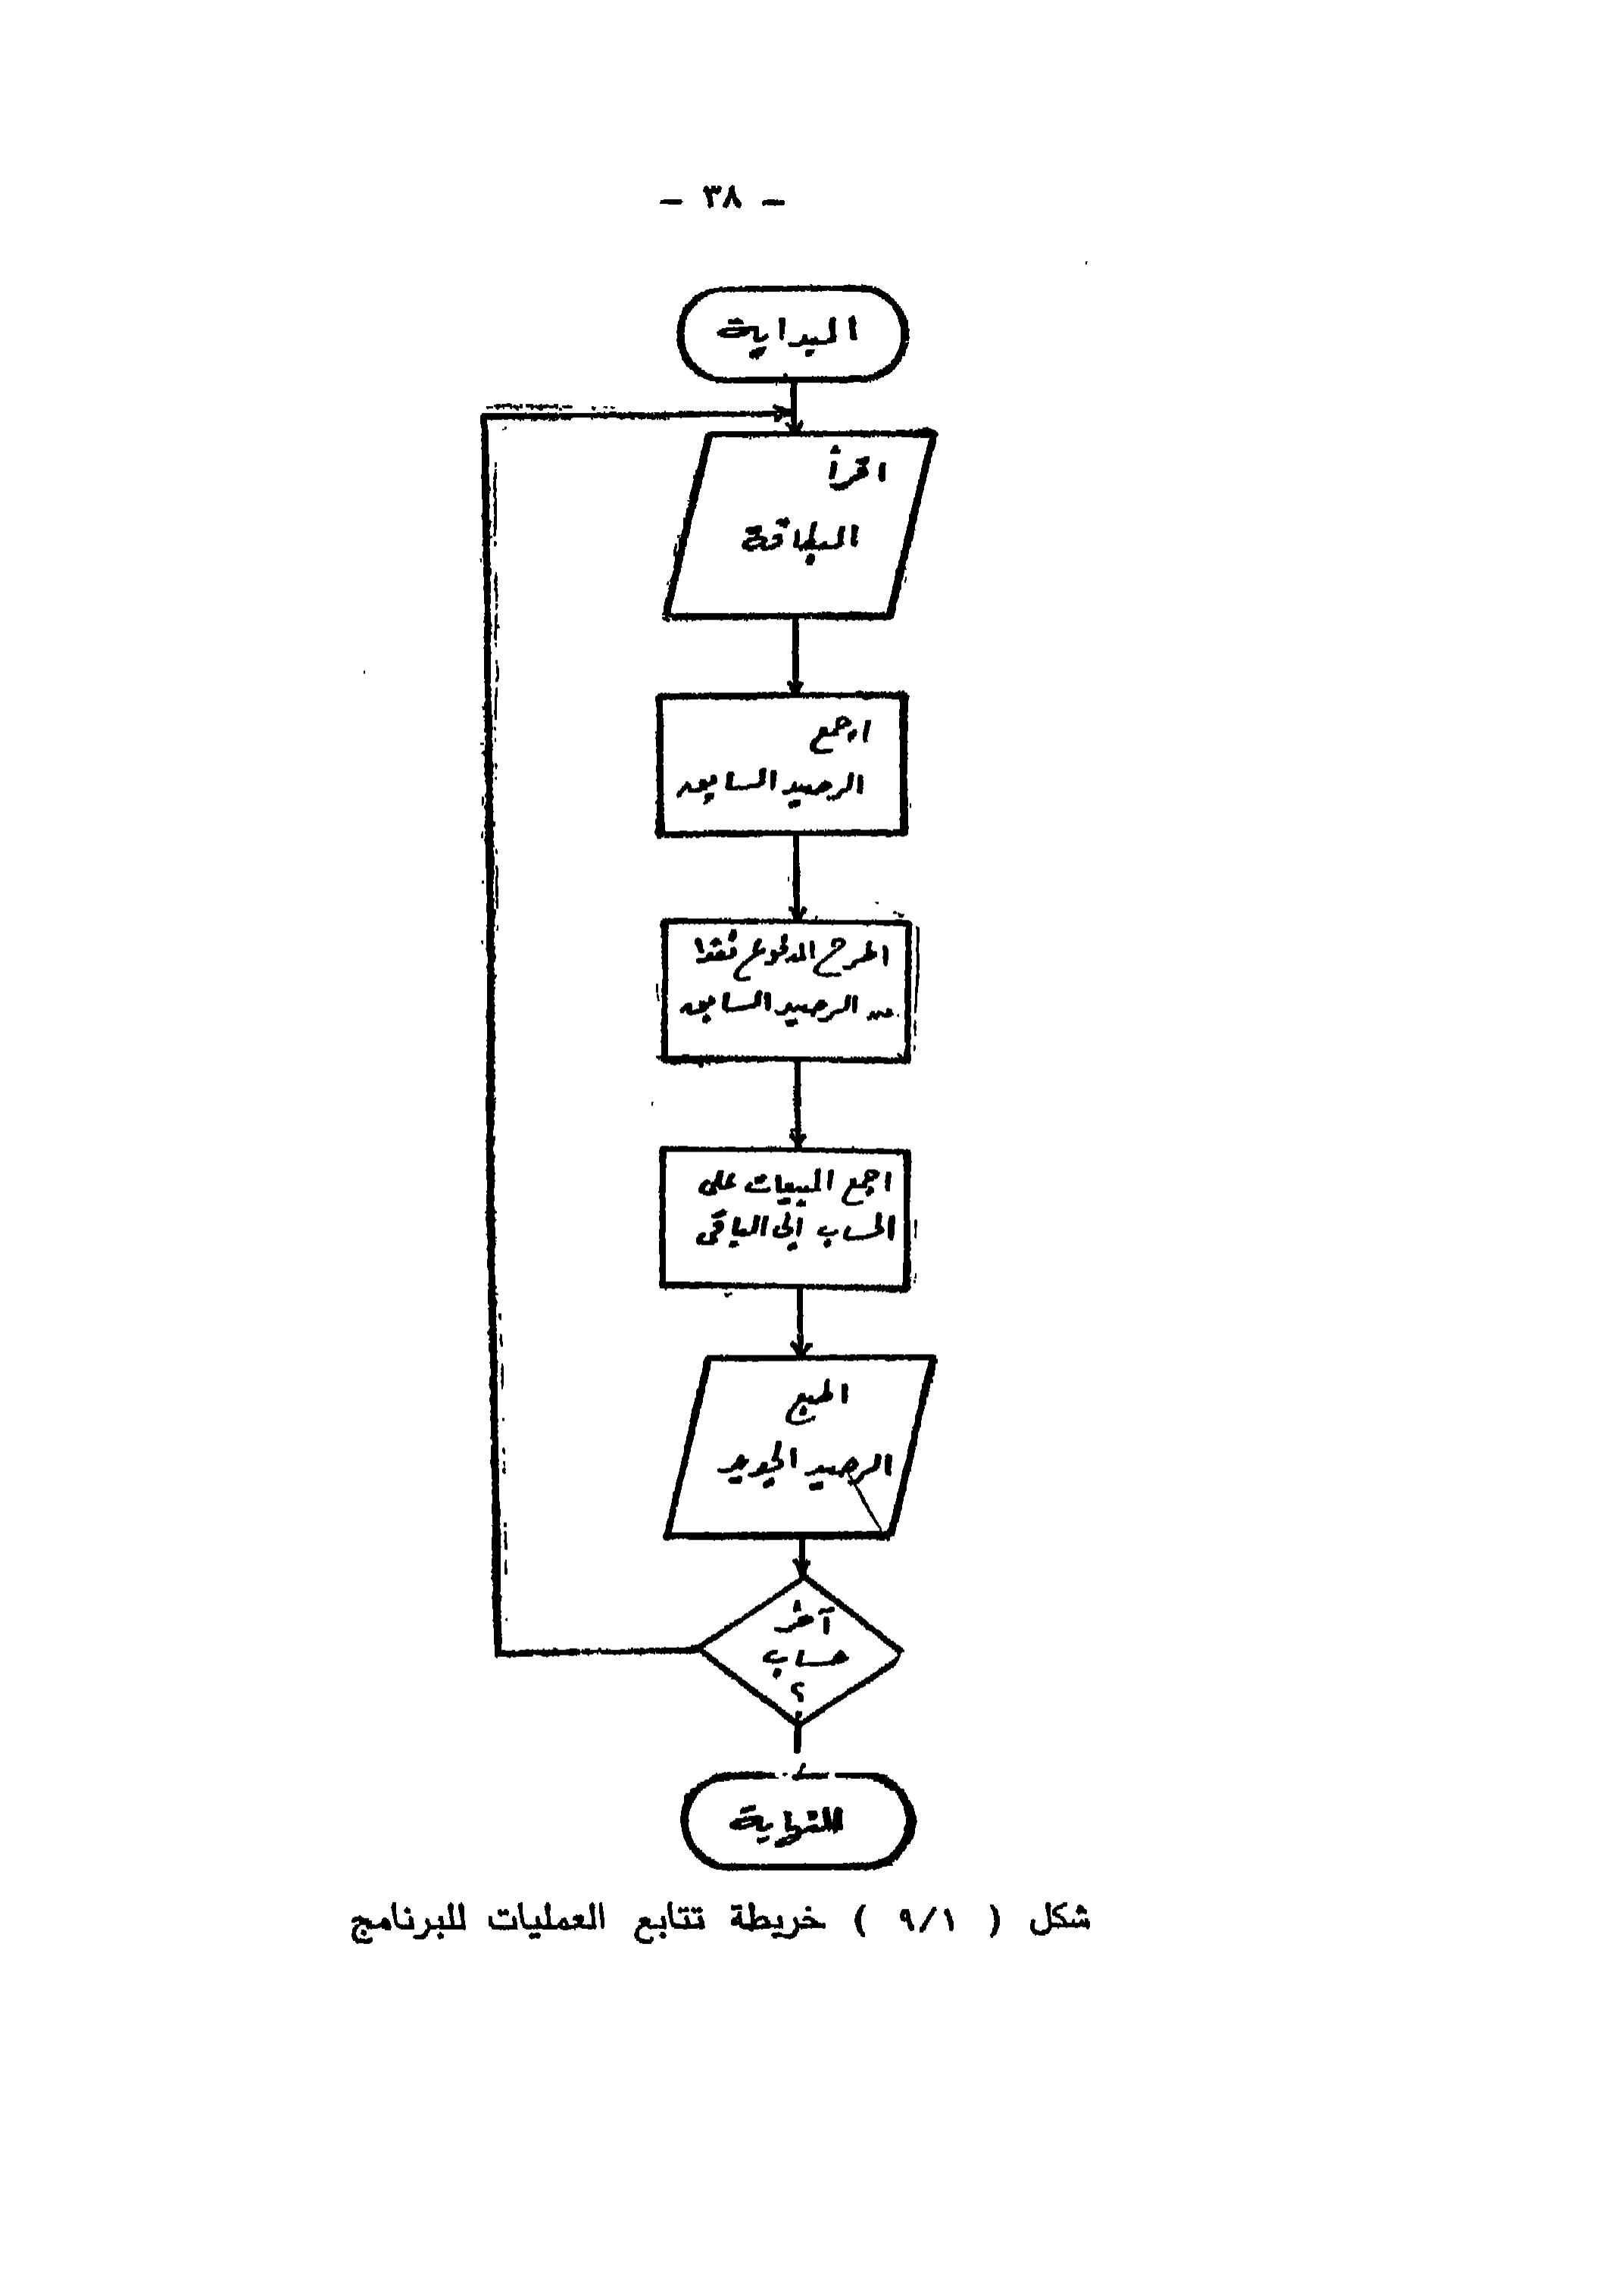 - ٣٨ -
البداية
اقرأ
البطاقة
اجمع
الرصيد السابق
اطرح المدفوع نقدا
من الرصيد السابق
اجمع المبيعات على
الحساب إلى الباقى
اطبع
الرصيد الجديد
آخر
حساب
؟
النهاية
شكل ( ٩/١ ) خريطة تتابع العمليات للبرنامج